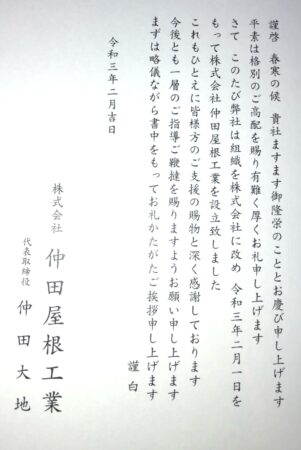 謹啓 春寒の候 貴社ますます御隆栄のこととお慶び申し上げます
平素は格別のご高配を賜り有難く厚くお礼申し上げます
さて このたび弊社は組織を株式会社に改め 令和三年二月一日を
もって株式会社仲田屋根工業を設立致しました
これもひとえに皆様方のご支援の賜物と深く感謝しております
今後とも一層のご指導ご鞭撻を賜りますようお願い申し上げます
まずは略儀ながら書中をもってお礼かたがたご挨拶申し上げます
謹白
令和三年二月吉日
株式会社 仲田屋根工業
代表取締役 仲田大地